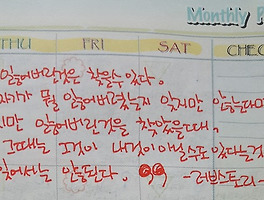 Monthly P
THU FRI SAT CHEC
잃어버린것은 찾을수 있다.
자기가 뭘 잃어버렸는지 잊지만 않는다면
지만 잃어버린것을 찾았을때,
그때는 그것이 내것이 아닐수도 있다는것
잊어서는 안된다.
-러브스토리-